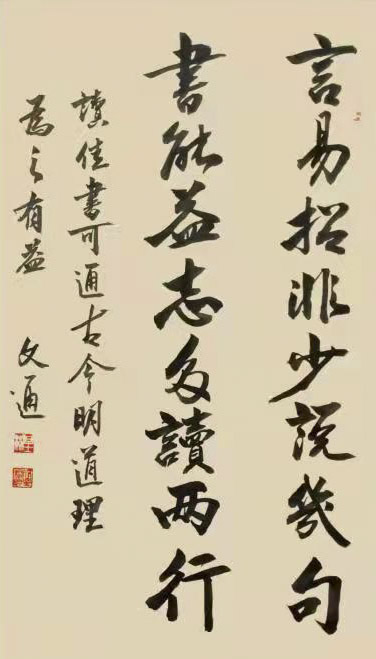 言易招非少說幾句
書能益志多讀兩行
讀佳書可通古今明道理
為之有益 文通